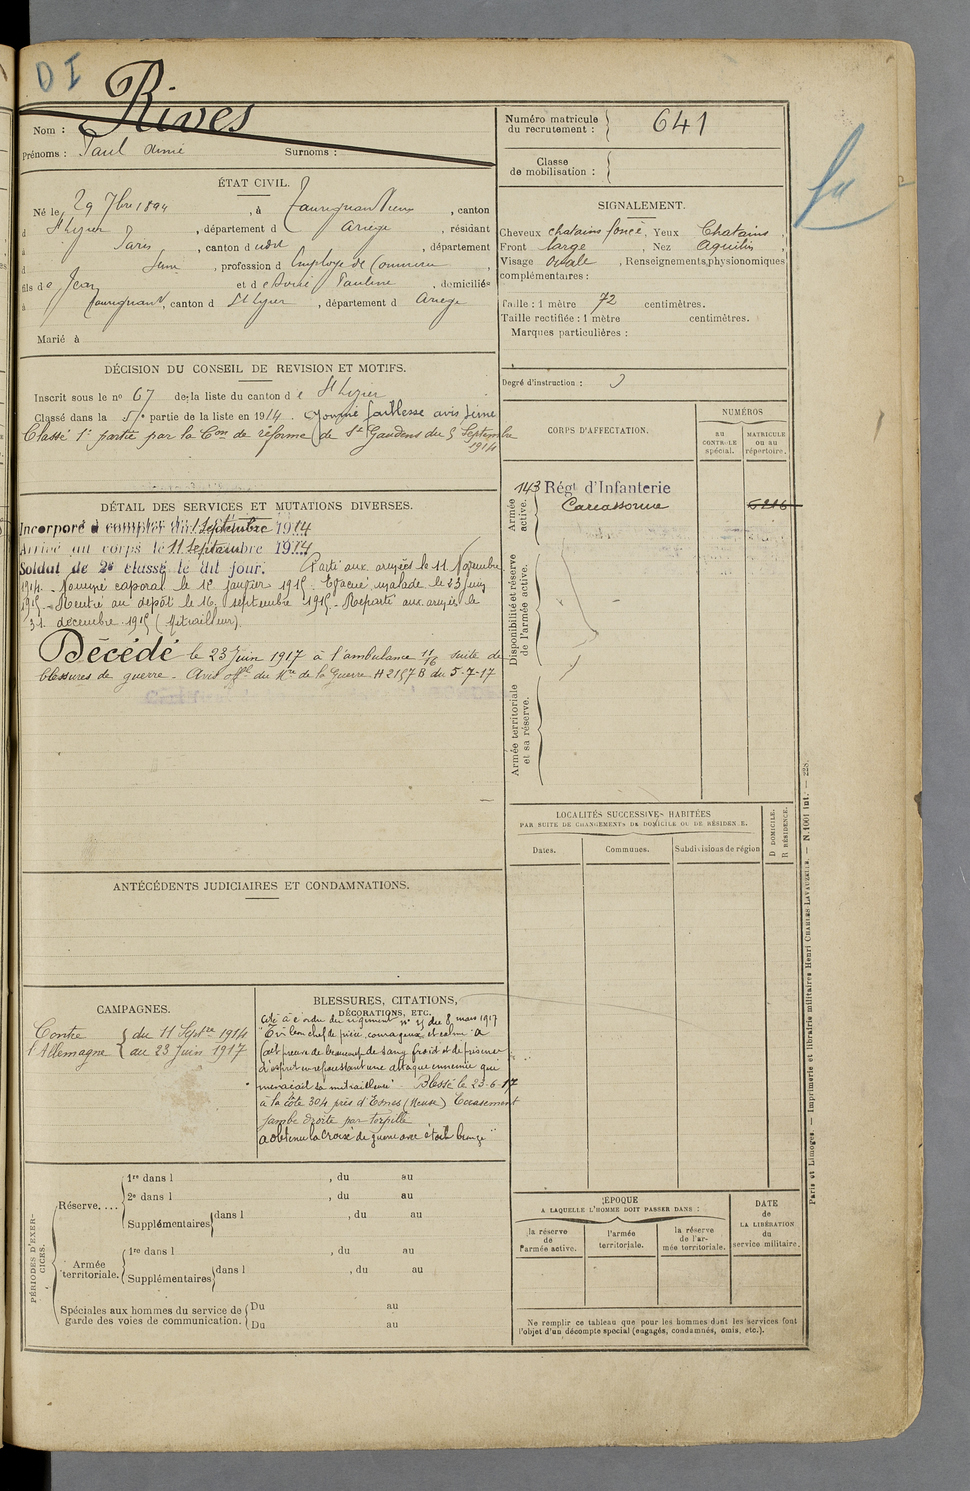 D I
Rives
Nom :
Prénoms : Paul Aimé Surnoms :
Numéro matricule
du recrutement : 641
Classe
de mobilisation :
ÉTAT CIVIL.
Né le 29 7bre 1894, à Taurignan Vieux, canton
d St Lizier, département d Ariège, résidant
à Paris, canton d udit, département
d Seine, profession d Employé de Commerce,
fils de Jean et d Pauline, domiciliés
à Taurignan V, canton d St Lizier, département d Ariège
Marié à
SIGNALEMENT.
Cheveux chatains foncé, Yeux Chatains,
Front large, Nez Aquilin,
Visage Ovale, Renseignements physionomiques
complémentaires :
Taille : 1 mètre 72 centimètres.
Taille rectifiée : 1 mètre centimètres.
Marques particulières :
Degré d'instruction : 3
DÉCISION DU CONSEIL DE REVISION ET MOTIFS.
Inscrit sous le no 67 de la liste du canton d e St Lizier
Classé dans la 5e partie de la liste en 1914. Ajourné faiblesse avis Seine
Classé 1e partie par la Con de réforme de St Gaudens du 5 Septembre
1914
DÉTAIL DES SERVICES ET MUTATIONS DIVERSES.
Incorporé à compter du 1 Septembre 1914
Arrivé au corps le 11 Septembre 1914
Soldat de 2e classe le dit jour. Parti aux armées le 11 Novembre
1914. Nommé caporal le 1er janvier 1915. Evacué malade le 23 juin
1915. Rentré au dépôt le 16 septembre 1915. Reparti aux armées le
31 décembre 1915 (Mitrailleur).
Décédé le 23 Juin 1917 à l'ambulance 11/16 suite de
blessures de guerre. Avis offel du Mre de la Guerre H 2157 B du 5-7-17
CORPS D'AFFECTATION.
NUMÉROS
AU CONTROLE spécial.
MATRICULE ou au répertoire.
Armée active.
143 Régt d'Infanterie
Carcassonne 6216
Disponibilité et réserve de l'armée active.
Armée territoriale et sa réserve.
LOCALITÉS SUCCESSIVES HABITÉES
PAR SUITE DE CHANGEMENTS DE DOMICILE OU DE RÉSIDENCE.
Dates. Communes. Subdivisions de région
D DOMICILE.
R RÉSIDENCE.
ANTÉCÉDENTS JUDICIAIRES ET CONDAMNATIONS.
CAMPAGNES.
Contre du 11 Septre 1914
l'Allemagne au 23 Juin 1917
BLESSURES, CITATIONS,
DÉCORATIONS, ETC.
Cité à l'ordre du régiment du 8 mars 1917
"Très bon chef de pièce, courageux et calme. A
fait preuve de beaucoup de sang froid et de présence
d'esprit en repoussant une attaque ennemie qui
menaçait sa mitrailleuse". Blessé le 23-6-17
à la côte 304 près d'Esnes (Meuse) Ecrasement
jambe droite par torpille
a obtenu la Croix de guerre avec étoile bronze"
PÉRIODES D'EXERCICES.
Réserve....
1re dans l , du au
2e dans l , du au
Supplémentaires dans l , du au
Armée territoriale.
1re dans l , du au
Supplémentaires dans l , du au
Spéciales aux hommes du service de Du au
garde des voies de communication. Du au
ÉPOQUE
A LAQUELLE L'HOMME DOIT PASSER DANS :
la réserve de l'armée active.
l'armée territoriale.
la réserve de l'armée territoriale.
DATE de LA LIBÉRATION du service militaire.
Ne remplir ce tableau que pour les hommes dont les services font
l'objet d'un décompte spécial (engagés, condamnés, omis, etc.).
Paris et Limoges. — Imprimerie et librairie militaires Henri CHARLES-LAVAUZELLE. — N. 1001 int. — 228.